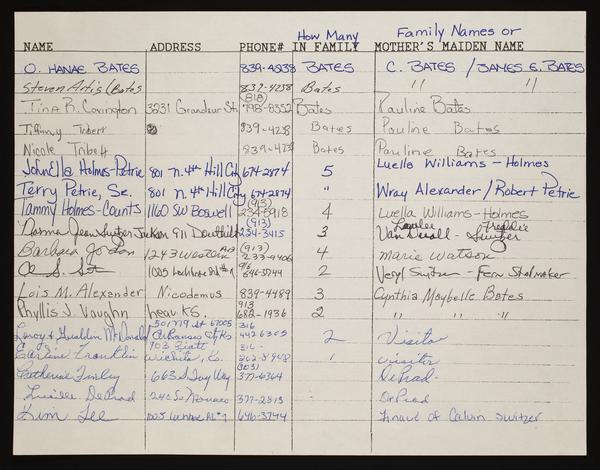 How Many Family Names or
NAME ADDRESS PHONE# IN FAMILY MOTHER'S MAIDEN NAME
O. HANAE BATES 839-4238 BATES C. BATES / JAMES E. BATES
Steven Artis (Bates 839-4238 Bates " "
(818)
Tina B. Covington 3931 Grandeur St. 798-8352 Bates Pauline Bates
Tiffany Tribett 839-428 Bates Pauline Bates
Nicole Tribett 839-423 Bates Pauline Bates
JohnElla Holmes-Petrie 801 N. 4th Hill City 674-2874 5 Luella Williams - Holmes
Terry Petrie, Se. 801 N. 4th Hill City 674-2874 " Wray Alexander / Robert Petrie
(913)
Tammy Holmes-Counts 1160 SW Boswell 234-5918 4 Luella Williams-Holmes
(913)
Norma Jean Switzer Jackson 911 234-3415 3 Van Duvall - Switzer
(913)
Barbara Jordan 1243 Western 233-9406 4 Marie Watson
1025 #7 646-3744 2 Veryl Switzer - Fern Stalmaker
Lois M. Alexander Nicodemus 839-4489 3 Cynthia Maybelle Bates
913
Phyllis J. Vaughn Leav. KS. 682-1936 2 " " "
501 N 9 St 67005 316
Leroy & Gueldon McDonald Arkansas City Ks 442 6305 2 Visitor
903 Piatt 316-
Earline Franklin Wichita, Ks. 262-8948 1 visitor
(303)
Catherine Finley 663 S Way 377-6364 DePrad
Lucille DePrad 240 So Monaco 377-2813 DePrad
Kim Lee 1025 #7 646-3744 friend of Calvin Switzer